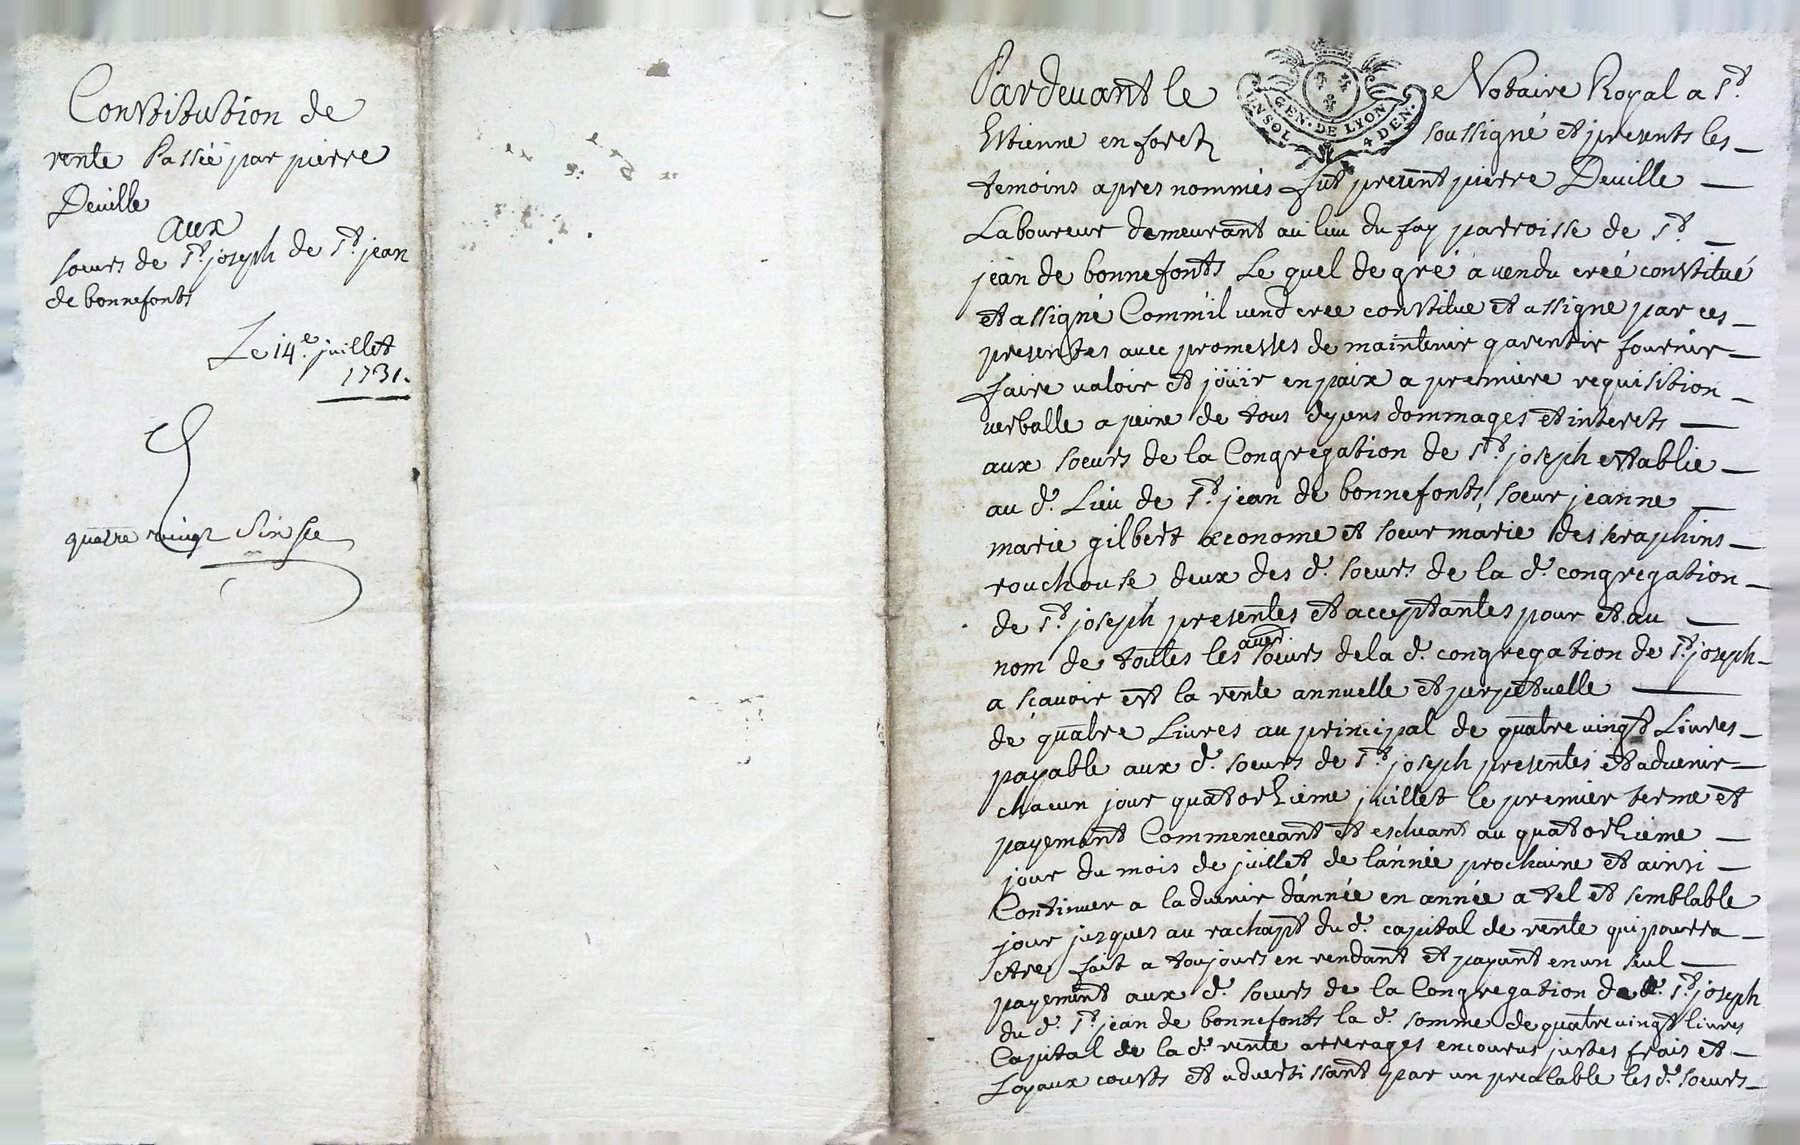 Constitution de
rente Passée par pierre
Deville
aux
soeurs de St. joseph de St. jean
de bonnefonts
Le 14e. juillet
1731.
quatre vingt
Pardevant le Notaire Royal a St.
GEN. DE LYON
UN SOL 4 DEN.
Estienne en foretz soussigné et presents les
temoins apres nommés fut present pierre Deville
Laboureur demeurant au lieu du fay parroisse de St.
jean de bonnefonts Le quel de gré a vendu creé constitué
et assigné Comm'il vend cree constitue et assigne par ces
presentes avec promesses de maintenir garentir fournir
faire valoir et joüir en paix a premiere requisition
verballe a peine de tous depens dommages et interets
aux soeurs de la Congregation de St. joseph establie
au d. Lieu de St. jean de bonnefonts, soeur jeanne
marie gilbert œconome et soeur marie des seraphins
rouchouse deux des d. soeurs de la d. congregation
de St. joseph presentes et acceptantes pour et au
nom de toutes les autres soeurs de la d. congregation de St. joseph
a sçavoir est la rente annuelle et perpetuelle
de quatre Livres au principal de quatre vingt Livres
payable aux d. soeurs de St. joseph presentes et advenir
chacun jour quatorzieme juillet le premier terme et
payement Commenceant et escheant au quatorzieme
jour du mois de juillet de l'année prochaine et ainsi
Continuer a ladvenir d'année en année a tel et semblable
jour jusques au rachapt du d. capital de rente qui pourra
etre fait a toujours en rendant et payant en un seul
payement aux d. soeurs de la Congregation de St. joseph
du d. St. jean de bonnefonts la d. somme de quatre vingt livres
Capital de la d. rente arrerages encourus justes frais et
Loyaux cousts et advertissant par un prealable les d. soeurs